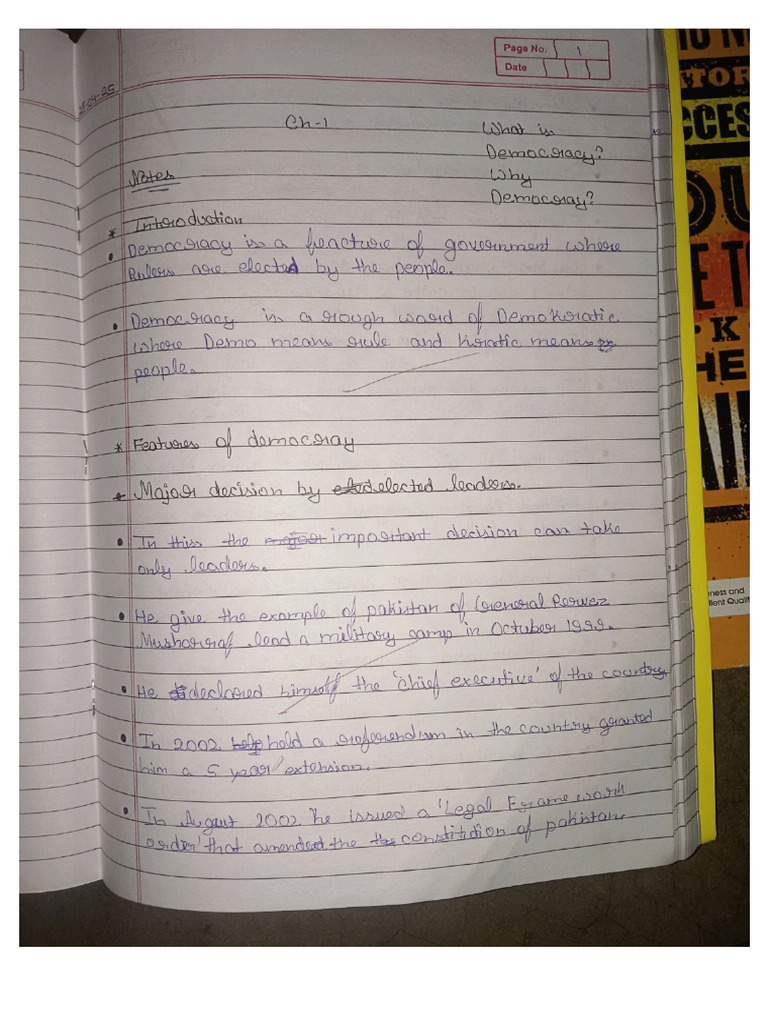 Page No. 1
Date
-04-25
Ch-1
What is
Democracy?
Why
Democray?
Notes
* Introduction
• Democracy is a feacture of government where
Rulers are elected by the people.
• Democracy is a rough word of Demokratic
where Demo means rule and kratic means
people.
* Features of democray
* Major decision by elected leaders.
• In this the major important decision can take
only leaders.
• He give the example of pakistan of General Perwez
Musharraf lead a military camp in October 1999.
• He declared himself the 'chief executive' of the country
• In 2002 help held a referendum in the country granted
him a 5 year extension.
• In August 2002 he issued a 'Legal Frame work
order' that amended the the constitution of pakistan
TOR
CCES
K
HE
ness and
llent Quali